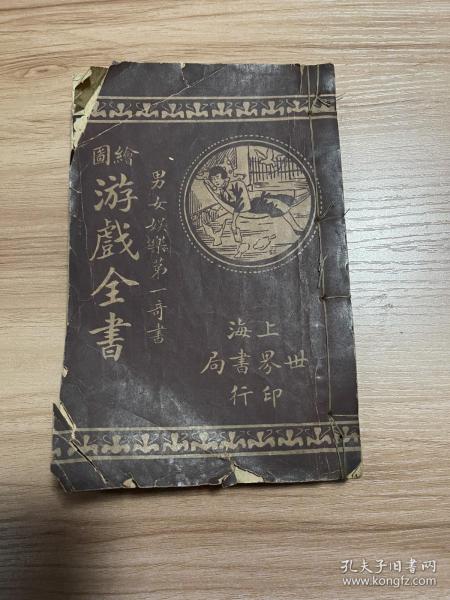 繪圖
游戲全書
男女娛樂第一奇書
上海
世界書局
印行
孔夫子旧书网
www.kongfz.com